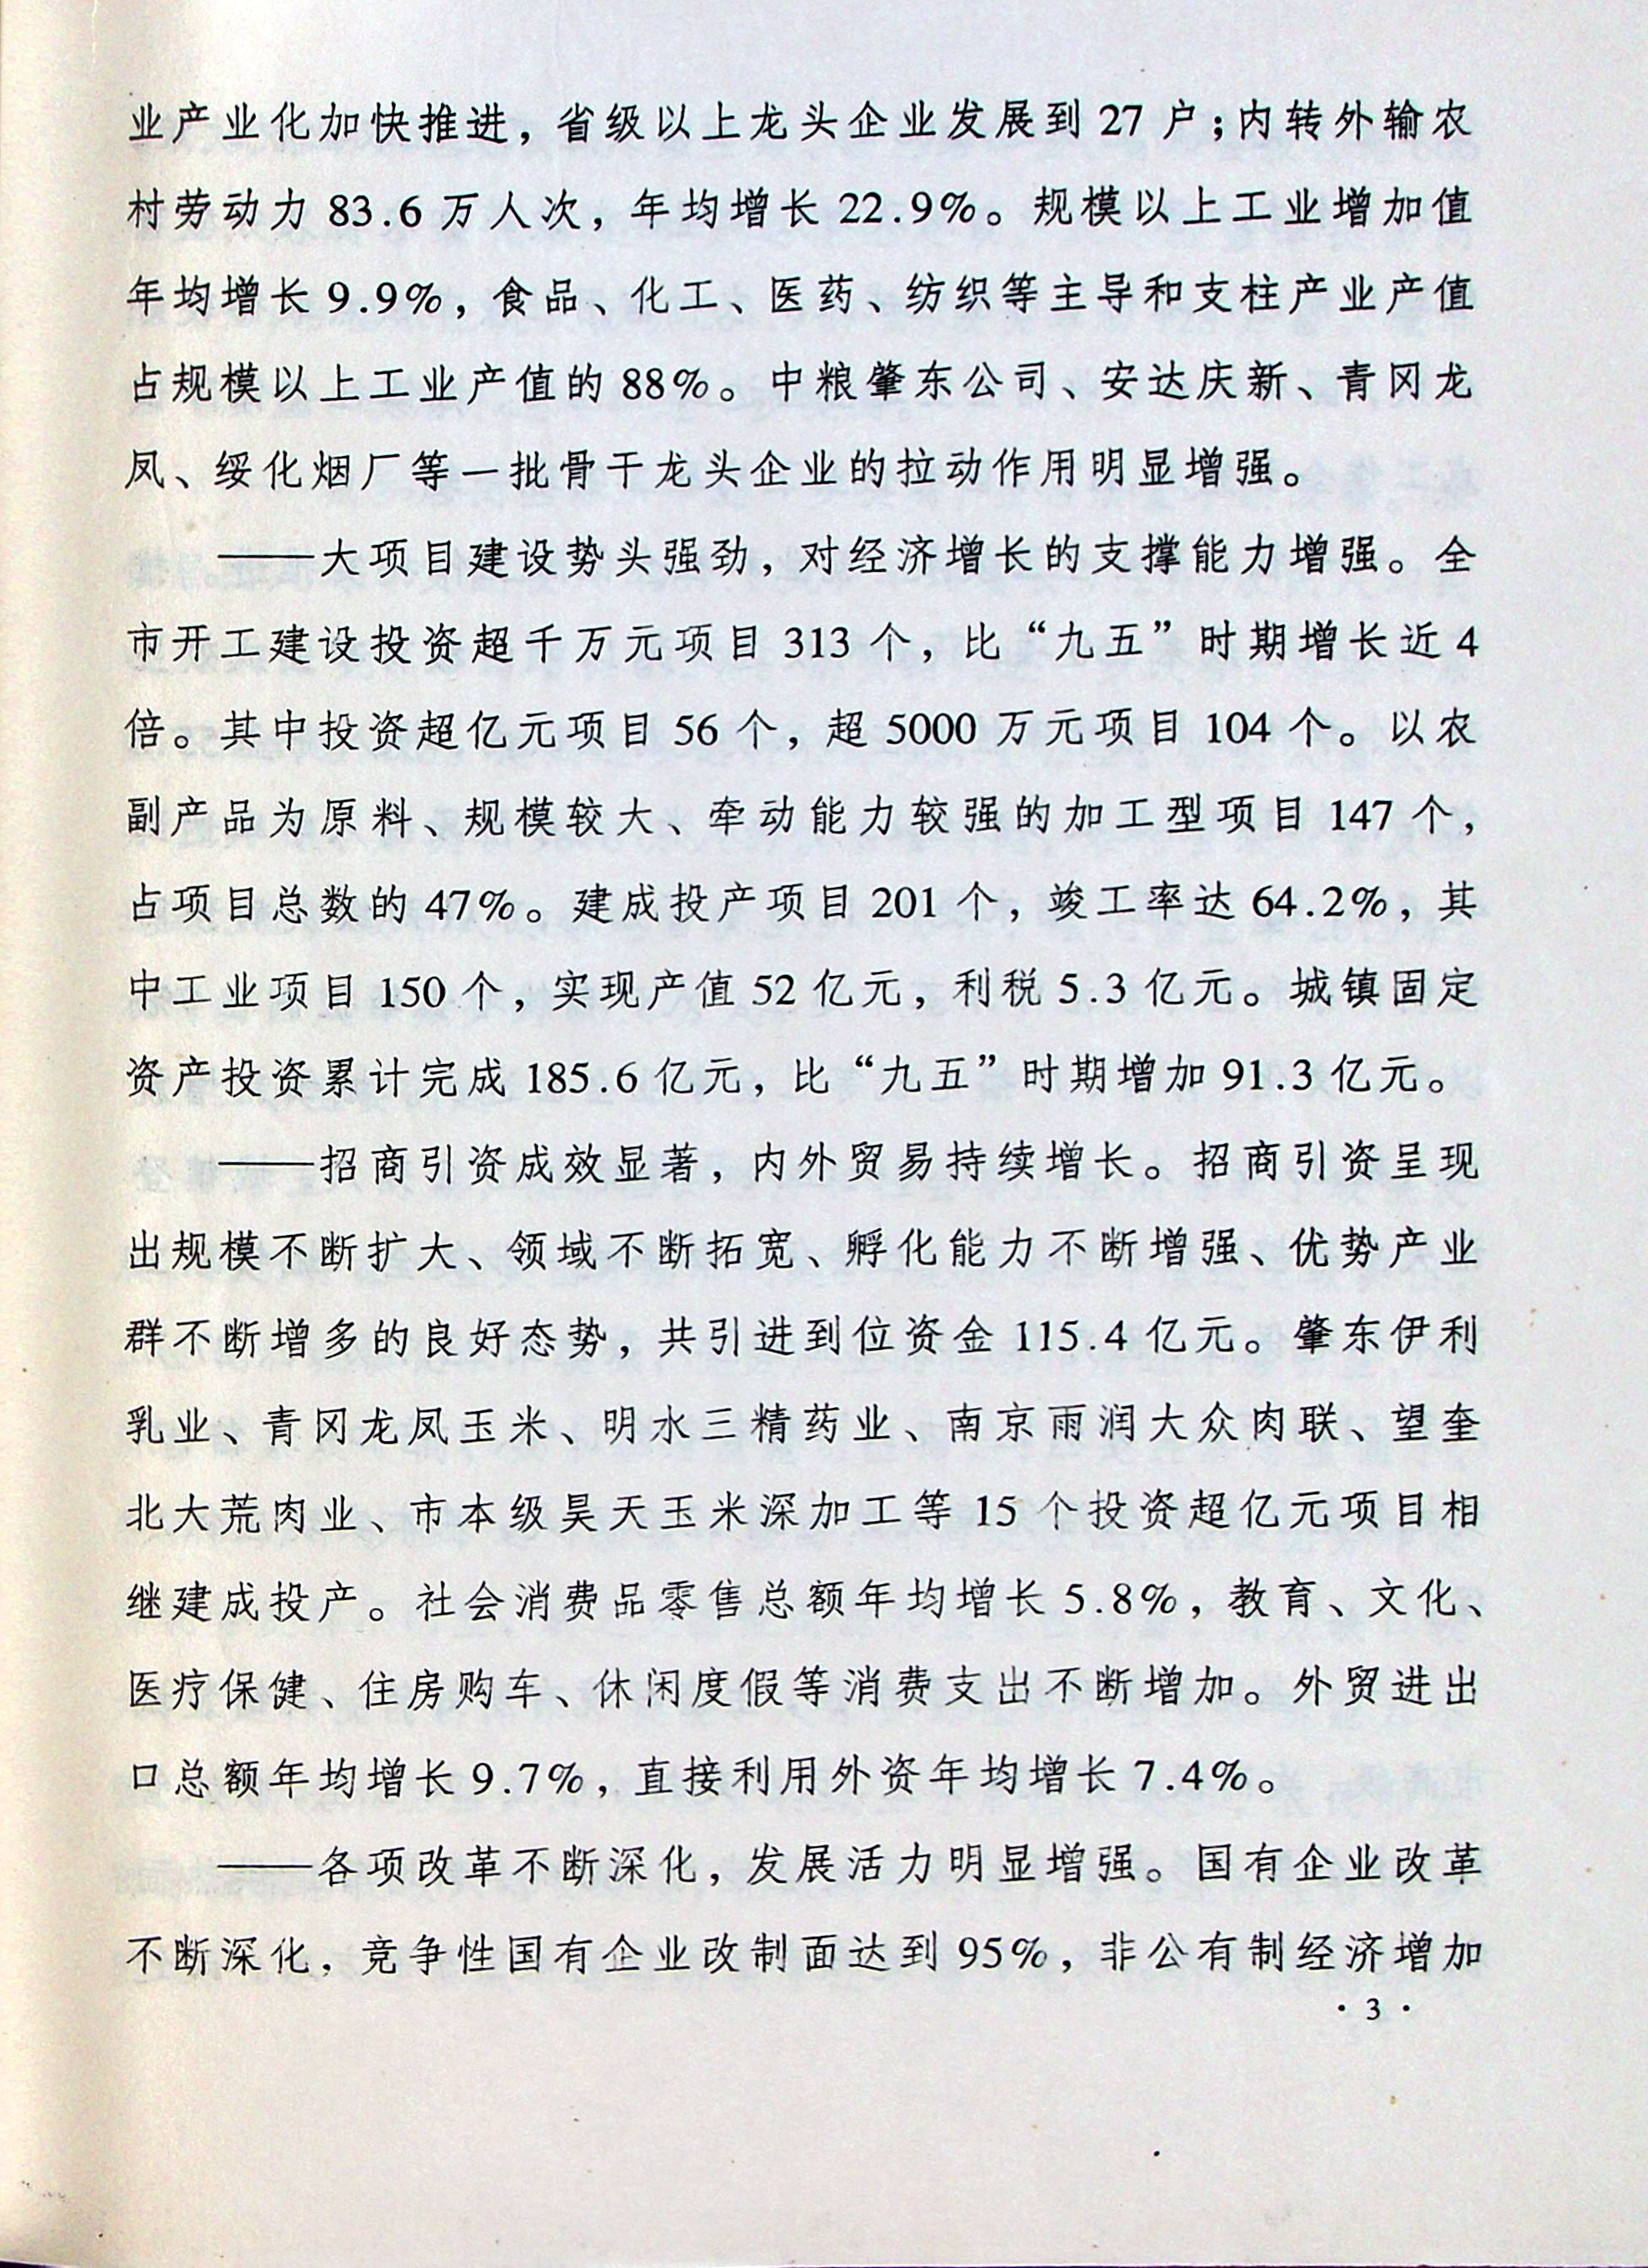 业产业化加快推进，省级以上龙头企业发展到 27 户；内转外输农
村劳动力 83.6 万人次，年均增长 22.9%。规模以上工业增加值
年均增长 9.9%，食品、化工、医药、纺织等主导和支柱产业产值
占规模以上工业产值的 88%。中粮肇东公司、安达庆新、青冈龙
凤、绥化烟厂等一批骨干龙头企业的拉动作用明显增强。
——大项目建设势头强劲，对经济增长的支撑能力增强。全
市开工建设投资超千万元项目 313 个，比“九五”时期增长近 4
倍。其中投资超亿元项目 56 个，超 5000 万元项目 104 个。以农
副产品为原料、规模较大、牵动能力较强的加工型项目 147 个，
占项目总数的 47%。建成投产项目 201 个，竣工率达 64.2%，其
中工业项目 150 个，实现产值 52 亿元，利税 5.3 亿元。城镇固定
资产投资累计完成 185.6 亿元，比“九五”时期增加 91.3 亿元。
——招商引资成效显著，内外贸易持续增长。招商引资呈现
出规模不断扩大、领域不断拓宽、孵化能力不断增强、优势产业
群不断增多的良好态势，共引进到位资金 115.4 亿元。肇东伊利
乳业、青冈龙凤玉米、明水三精药业、南京雨润大众肉联、望奎
北大荒肉业、市本级昊天玉米深加工等 15 个投资超亿元项目相
继建成投产。社会消费品零售总额年均增长 5.8%，教育、文化、
医疗保健、住房购车、休闲度假等消费支出不断增加。外贸进出
口总额年均增长 9.7%，直接利用外资年均增长 7.4%。
——各项改革不断深化，发展活力明显增强。国有企业改革
不断深化，竞争性国有企业改制面达到 95%，非公有制经济增加
· 3 ·